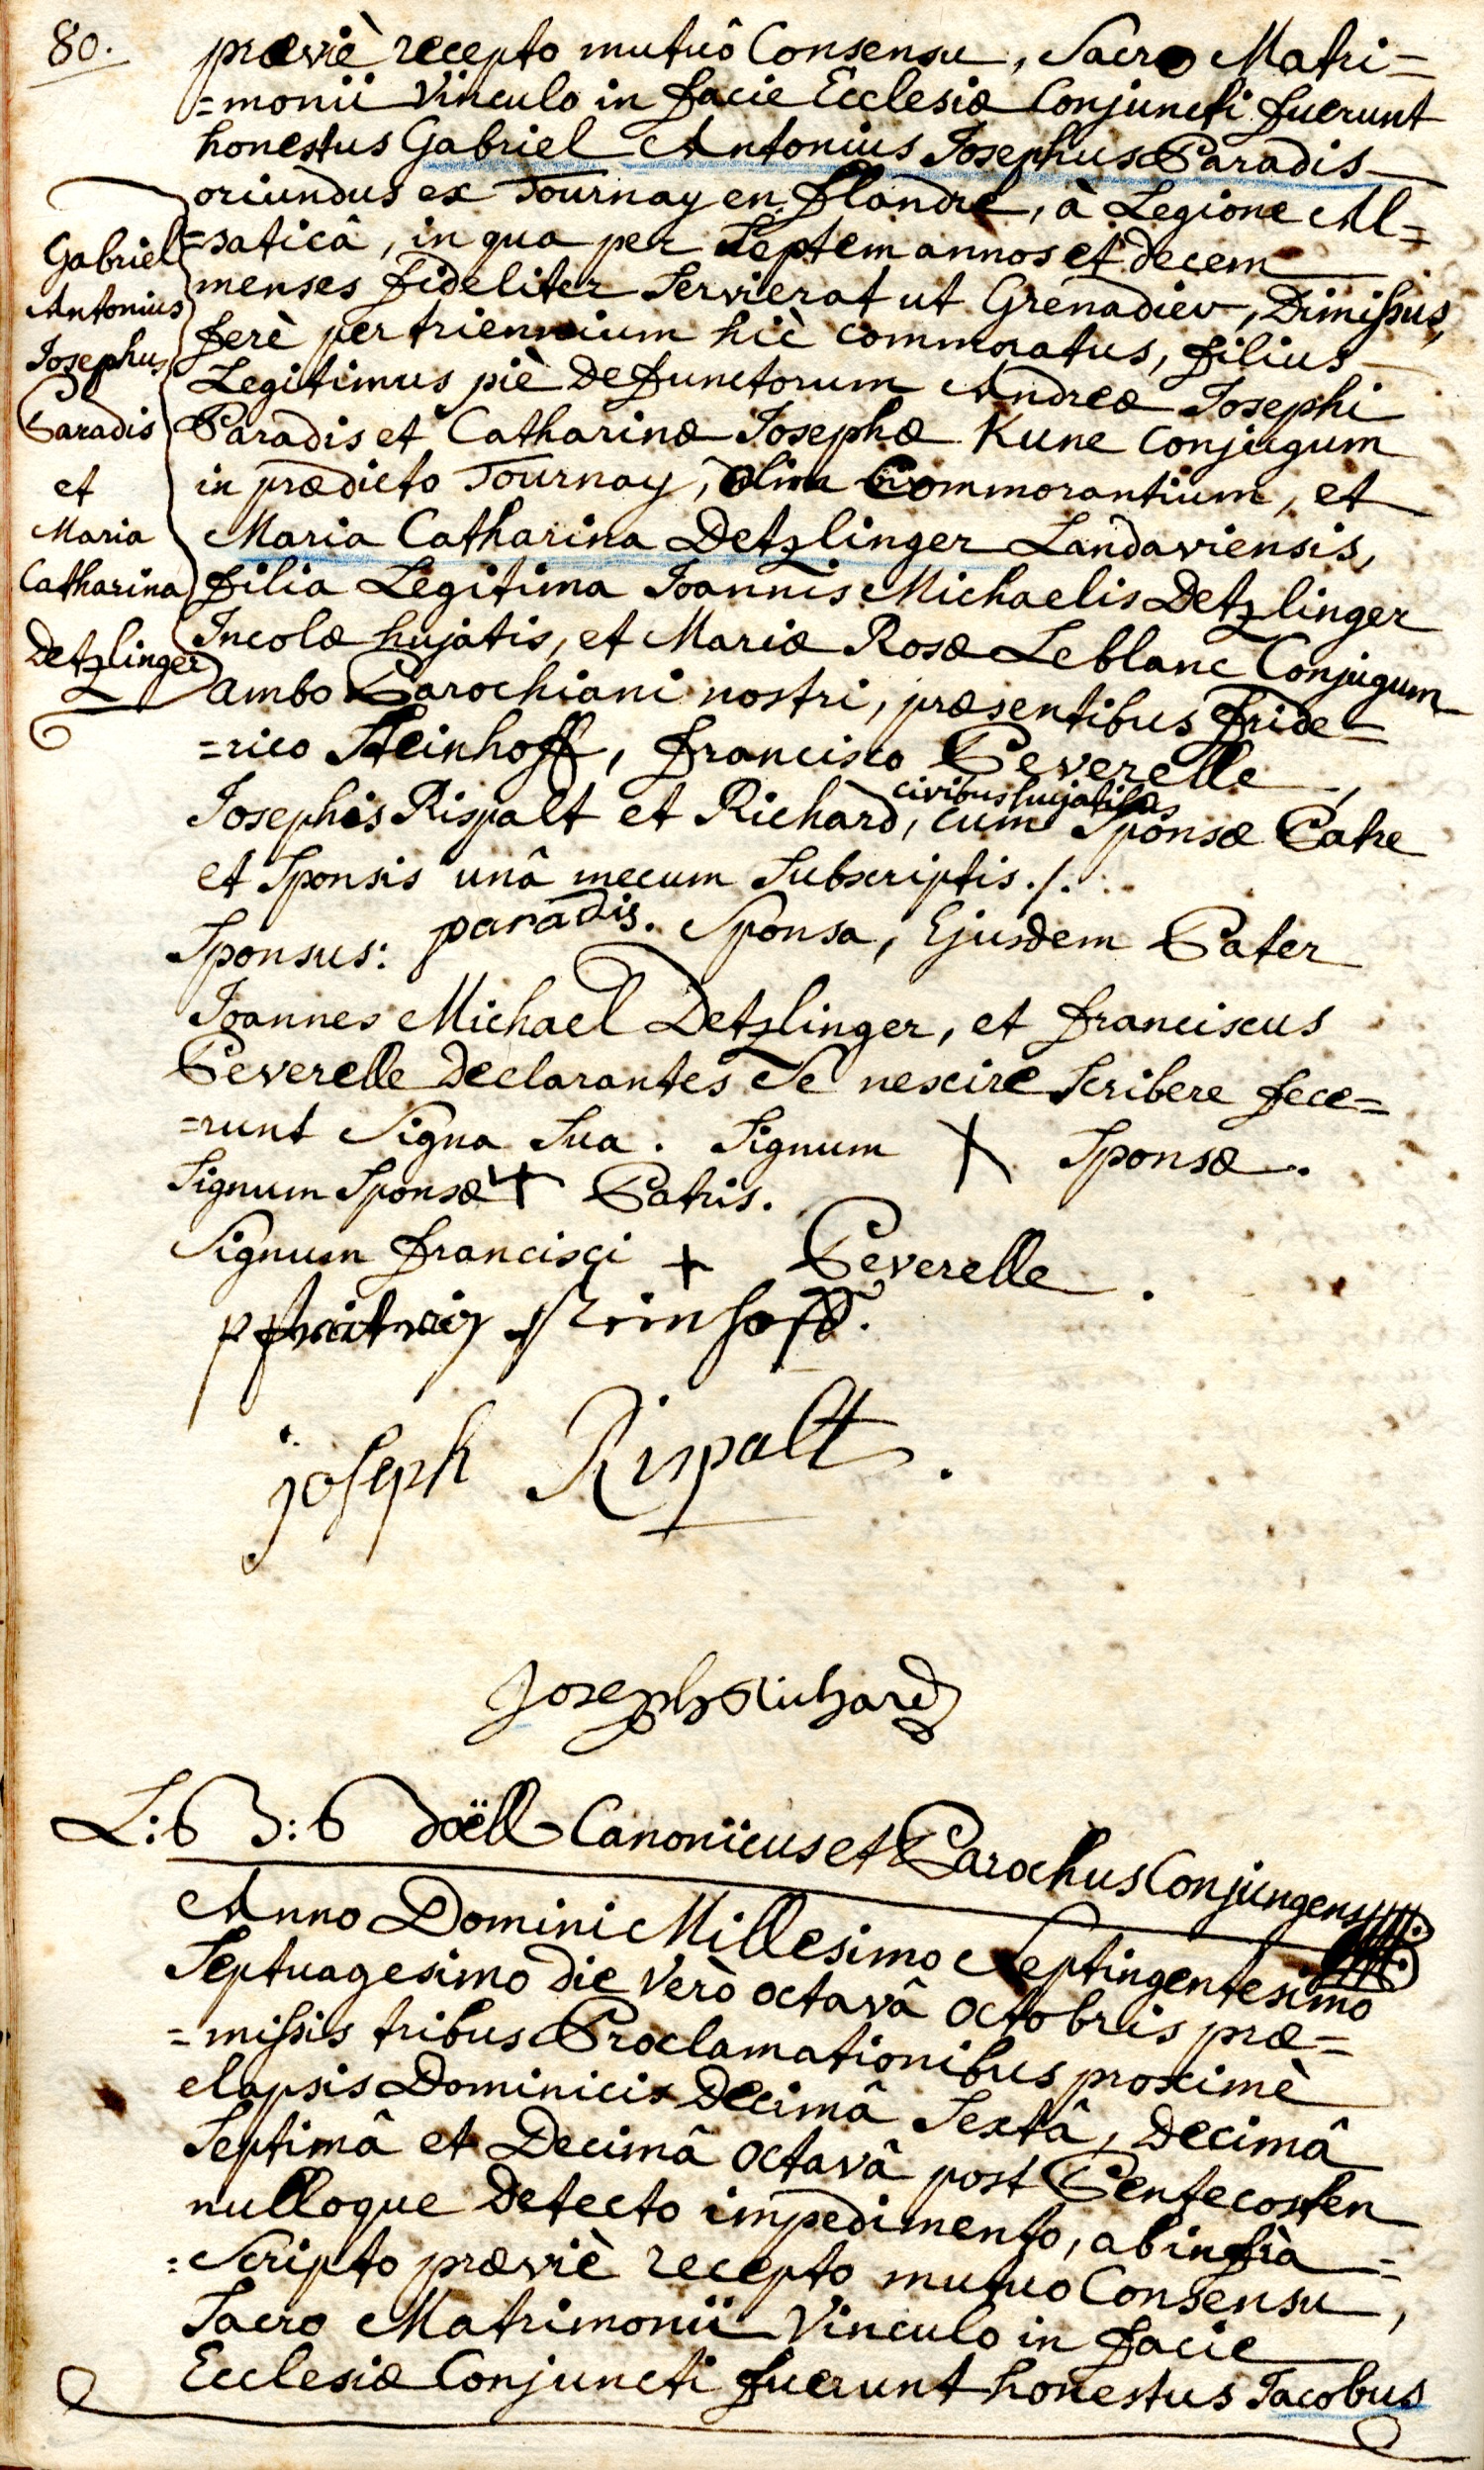 80.
præviè recepto mutuô Consensu, Sacro Matri=
=monii Vinculo in facie Ecclesiæ Conjuncti fuerunt
honestus Gabriel Antonius Josephus Paradis
oriundus ex Tournay en flandre, à Legione Al=
=saticâ, in qua per Septem annos et decem
menses fideliter Servierat ut Grenadier, Dimissus,
ferè per triennium hìc commoratus, filius
Legitimus piè Defunctorum Andreæ Josephi
Paradis et Catharinæ Josephæ Kune Conjugum
in prædicto Tournay, olim Commorantium, et
Maria Catharina Detzlinger Landaviensis,
filia Legitima Joannis Michaelis Detzlinger
Incolæ hujatis, et Mariæ Rosæ Leblanc Conjugum
ambo Parochiani nostri, præsentibus fride=
=rico Steinhoff, francisco Peverelle,
civibus hujatibus
Josephis Rispalt et Richard, cum Sponsæ Patre
et Sponsis unâ mecum Subscriptis./.
Gabriel
Antonius
Josephus
Paradis
et
Maria
Catharina
Detzlinger
Sponsus: paradis. Sponsa, Ejusdem Pater
Joannes Michael Detzlinger, et franciscus
Peverelle Declarantes Se nescire Scribere fece=
=runt Signa Sua. Signum X Sponsæ.
Signum Sponsæ + Patris.
Signum francisci + Peverelle.
Steinhoff.
joseph Rispalt.
Joseph Richard
Doëll Canonicus et Parochus Conjungens
Anno Domini Millesimo Septingentesimo
Septuagesimo die Verò octavâ octobris præ=
=missis tribus Proclamationibus proximè
elapsis Dominicis Decimâ Sextâ, Decimâ
Septimâ et Decimâ octavâ post Pentecosten
nulloque Detecto impedimento, ab infrà=
=Scripto præviè recepto mutuo Consensu,
Sacro Matrimonii Vinculo in facie
Ecclesiæ Conjuncti fuerunt honestus Jacobus